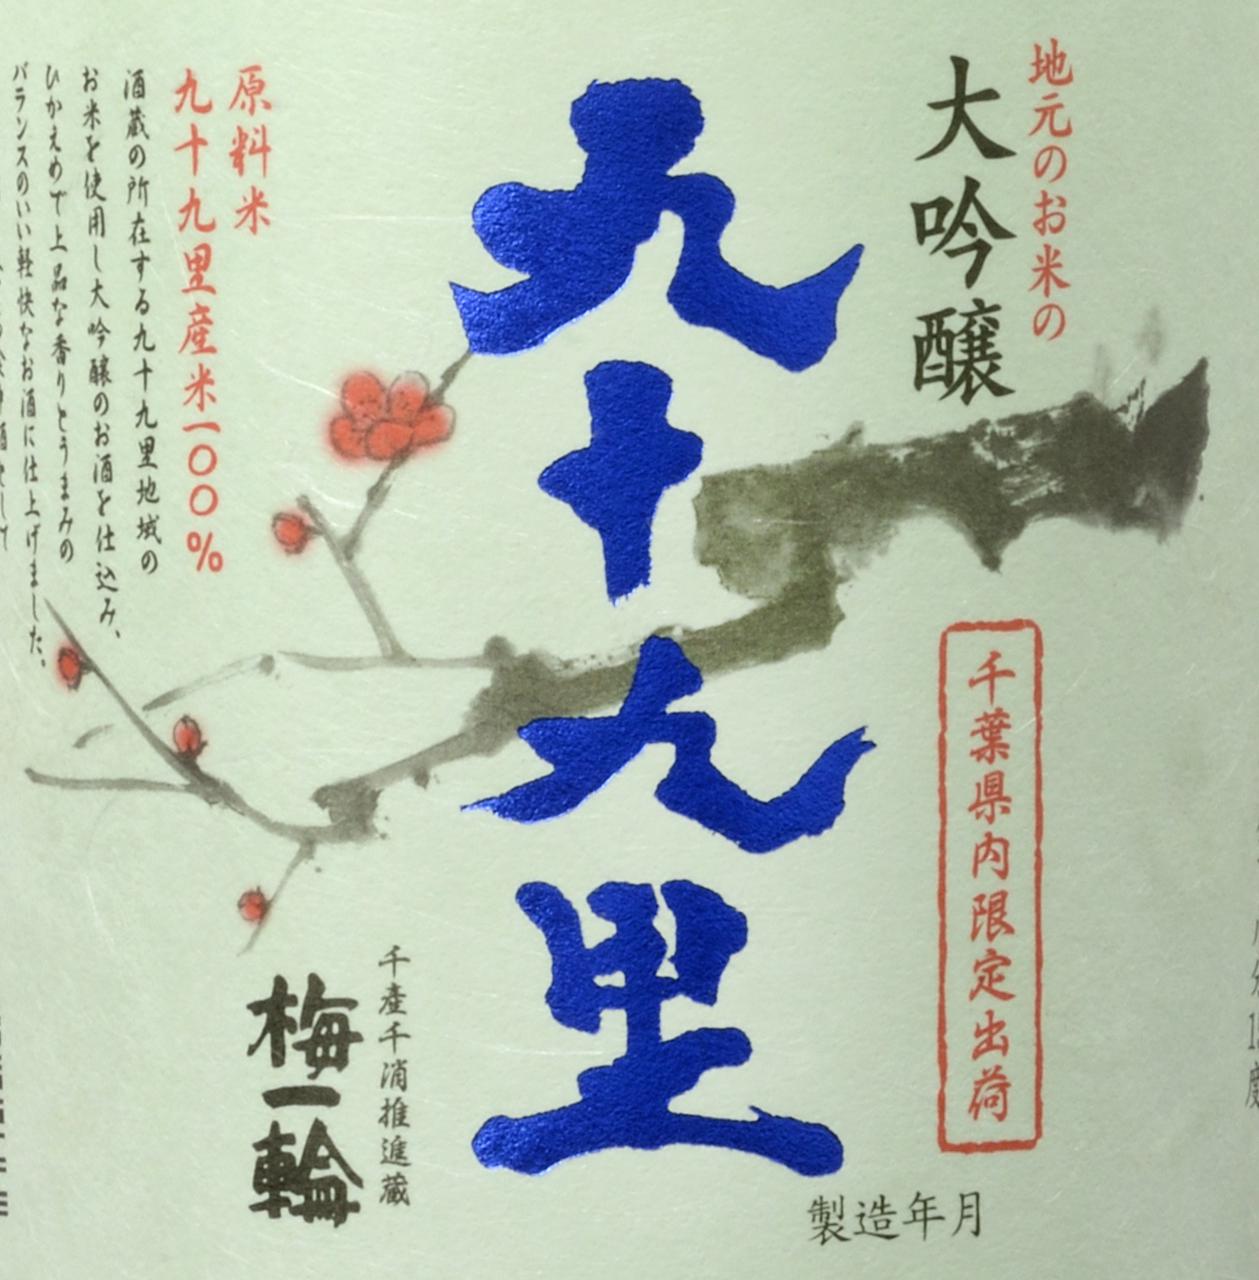 地元のお米の
大吟醸
千葉県内限定出荷
九十九里
製造年月
千産千消推進蔵
梅一輪
原料米
九十九里産米一〇〇%
酒蔵の所在する九十九里地域の
お米を使用し大吟醸のお酒を仕込み、
ひかえめで上品な香りとうまみの
バランスのいい軽快なお酒に仕上げました。